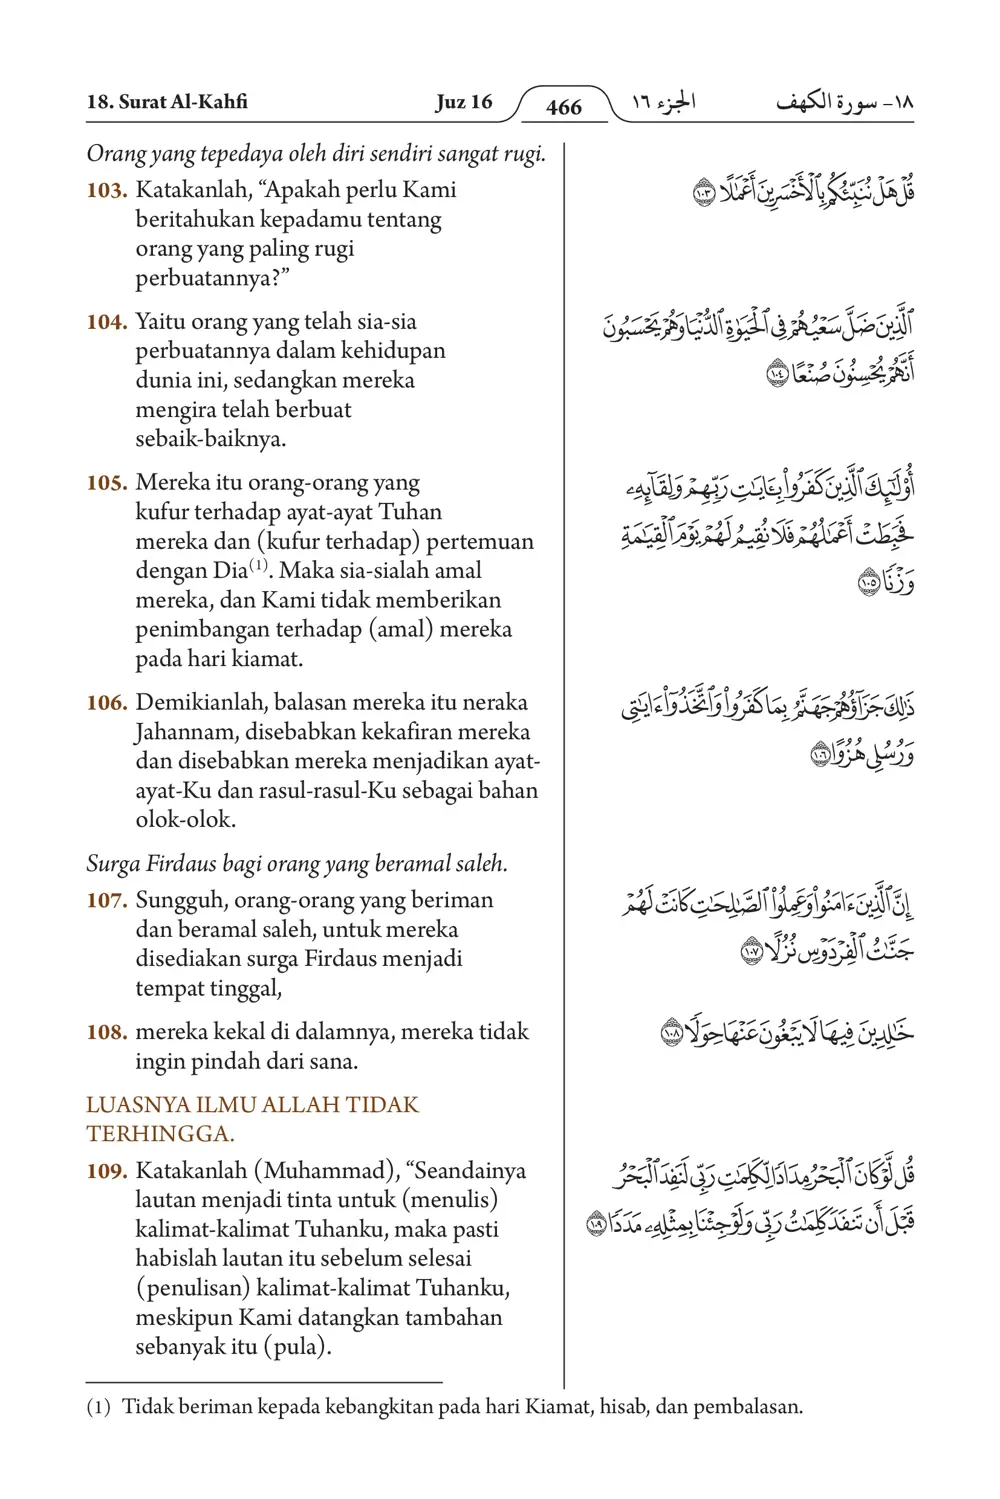 18. Surat Al-Kahfi
Juz 16
466
الجزء ١٦
١٨- سورة الكهف
Orang yang tepedaya oleh diri sendiri sangat rugi.
103. Katakanlah, “Apakah perlu Kami
beritahukan kepadamu tentang
orang yang paling rugi
perbuatannya?”
قُلْ هَلْ نُنَبِّئُكُم بِٱلْأَخْسَرِينَ أَعْمَٰلًا ١٠٣
104. Yaitu orang yang telah sia-sia
perbuatannya dalam kehidupan
dunia ini, sedangkan mereka
mengira telah berbuat
sebaik-baiknya.
ٱلَّذِينَ ضَلَّ سَعْيُهُمْ فِى ٱلْحَيَوٰةِ ٱلدُّنْيَا وَهُمْ يَحْسَبُونَ
أَنَّهُمْ يُحْسِنُونَ صُنْعًا ١٠٤
105. Mereka itu orang-orang yang
kufur terhadap ayat-ayat Tuhan
mereka dan (kufur terhadap) pertemuan
dengan Dia(1). Maka sia-sialah amal
mereka, dan Kami tidak memberikan
penimbangan terhadap (amal) mereka
pada hari kiamat.
أُو۟لَٰٓئِكَ ٱلَّذِينَ كَفَرُوا۟ بِـَٔايَٰتِ رَبِّهِمْ وَلِقَآئِهِۦ
فَحَبِطَتْ أَعْمَٰلُهُمْ فَلَا نُقِيمُ لَهُمْ يَوْمَ ٱلْقِيَٰمَةِ
وَزْنًا ١٠٥
106. Demikianlah, balasan mereka itu neraka
Jahannam, disebabkan kekafiran mereka
dan disebabkan mereka menjadikan ayat-
ayat-Ku dan rasul-rasul-Ku sebagai bahan
olok-olok.
ذَٰلِكَ جَزَآؤُهُمْ جَهَنَّمُ بِمَا كَفَرُوا۟ وَٱتَّخَذُوٓا۟ ءَايَٰتِى
وَرُسُلِى هُزُوًا ١٠٦
Surga Firdaus bagi orang yang beramal saleh.
107. Sungguh, orang-orang yang beriman
dan beramal saleh, untuk mereka
disediakan surga Firdaus menjadi
tempat tinggal,
إِنَّ ٱلَّذِينَ ءَامَنُوا۟ وَعَمِلُوا۟ ٱلصَّٰلِحَٰتِ كَانَتْ لَهُمْ
جَنَّٰتُ ٱلْفِرْدَوْسِ نُزُلًا ١٠٧
108. mereka kekal di dalamnya, mereka tidak
ingin pindah dari sana.
خَٰلِدِينَ فِيهَا لَا يَبْغُونَ عَنْهَا حِوَلًا ١٠٨
LUASNYA ILMU ALLAH TIDAK
TERHINGGA.
109. Katakanlah (Muhammad), “Seandainya
lautan menjadi tinta untuk (menulis)
kalimat-kalimat Tuhanku, maka pasti
habislah lautan itu sebelum selesai
(penulisan) kalimat-kalimat Tuhanku,
meskipun Kami datangkan tambahan
sebanyak itu (pula).
قُل لَّوْ كَانَ ٱلْبَحْرُ مِدَادًا لِّكَلِمَٰتِ رَبِّى لَنَفِدَ ٱلْبَحْرُ
قَبْلَ أَن تَنفَدَ كَلِمَٰتُ رَبِّى وَلَوْ جِئْنَا بِمِثْلِهِۦ مَدَدًا ١٠٩
(1) Tidak beriman kepada kebangkitan pada hari Kiamat, hisab, dan pembalasan.